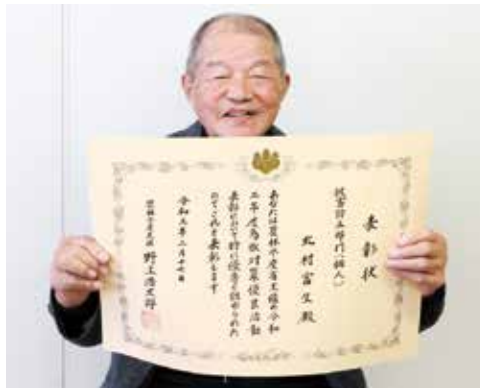 表彰状
被害防止部門（個人）
北村富生殿
あなたは農林水産省主催の令和
二年度鳥獣対策優良活動
表彰において特に優秀と認められた
のでこれを表彰します
令和三年二月十七日
農林水産大臣 野上浩太郎